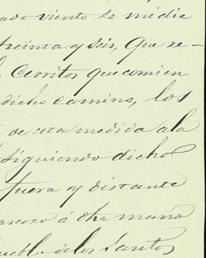 ado viento le midie
treinta y seis, Que se-
Cerritos que comien
dicho camino, los
de esta medida a la
Siguiendo dicho
fuera y distante
a otra mano
pueblo de los Santos